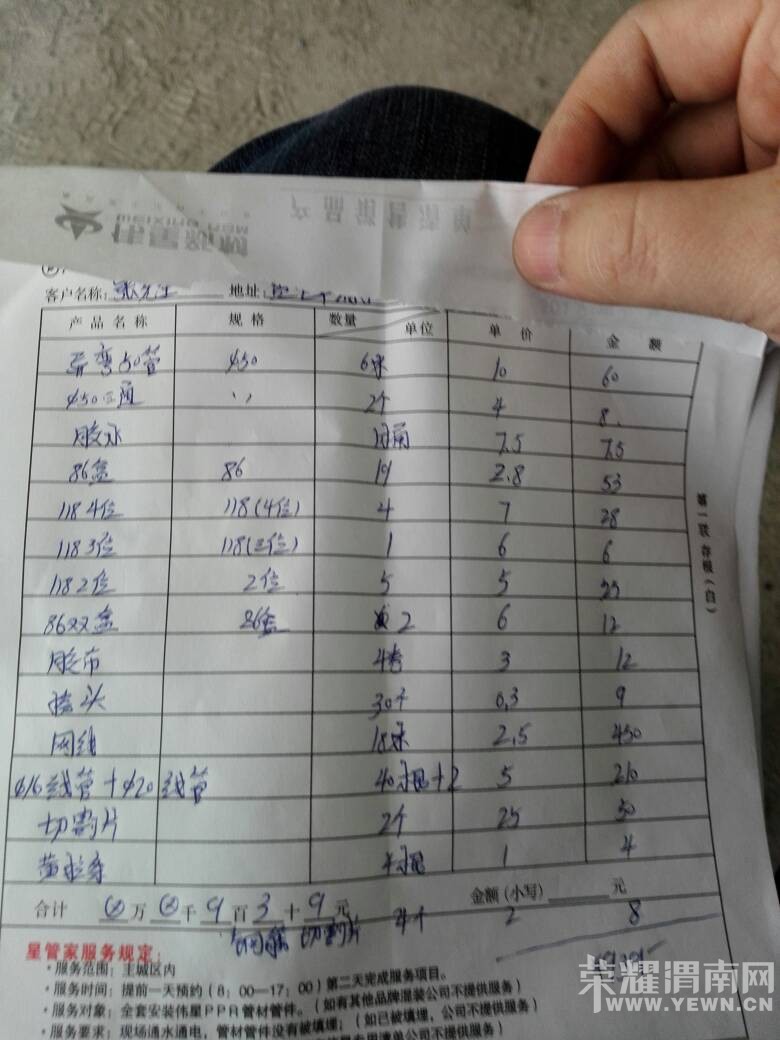 客户名称： 张先生 地址：
产品名称 规格 数量 单位 单价 金额
弯50管 φ50 6米 10 60
φ50三通 〃 2个 4 8.
胶水 7.5 7.5
86盒 86 19 2.8 53
118 4位 118(4位) 4 7 28
118 3位 118(三位) 1 6 6
118 2位 2位 5 5 25
86双盒 86盒 2 6 12
胶布 4卷 3 12
接头 30个 0.3 9
网线 18米 2.5 450
φ16线管+φ20线管 40根+2 5 210
切割片 2个 25 50
黄蜡管 4根 1 4
合计 ⊗万⊗千9百3十9元 金额(小写) 元
切割片 4个 2 8
星管家服务规定：
・服务范围：主城区内
・服务时间：提前一天预约（8：00—17：00）第二天完成服务项目。
・服务对象：全套安装伟星PPR管材管件。（如有其他品牌混装公司不提供服务）
・服务要求：现场通水通电，管材管件没有被填埋；（如已被填埋，公司不提供服务）
第一联 存根（白）
荣耀渭南网
WWW.YEWN.CN